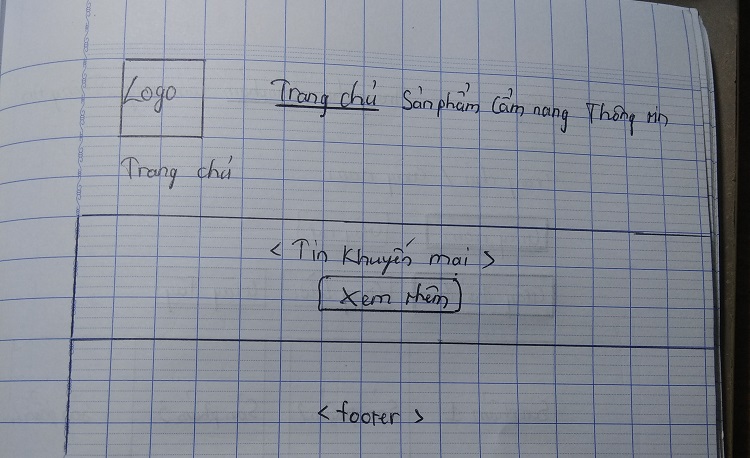 Logo
Trang chủ Sản phẩm Cẩm nang Thông tin
Trang chủ
< Tin khuyến mại >
Xem thêm
< footer >